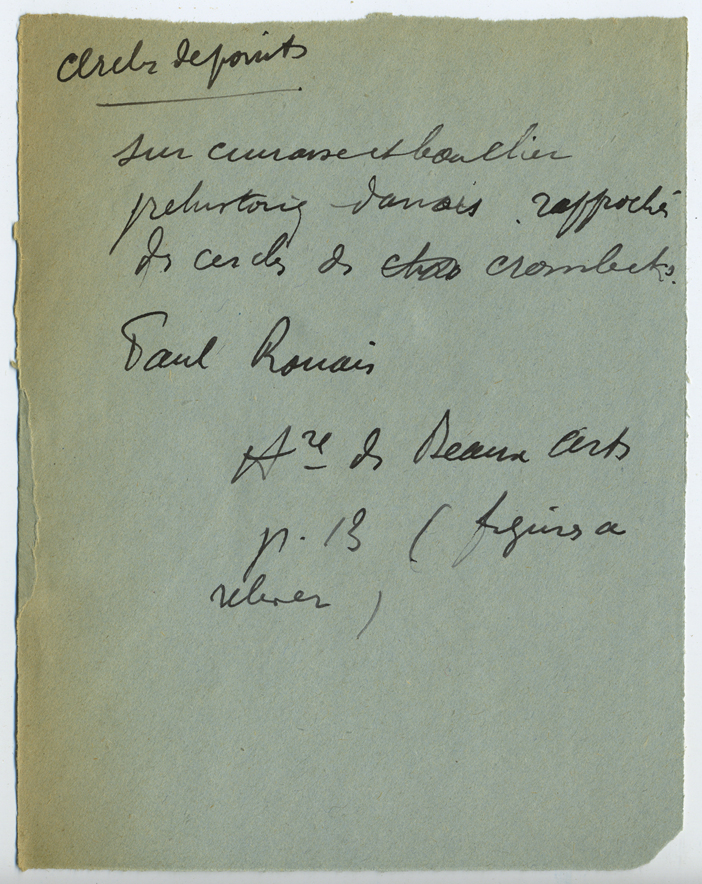 Cercle de points
sur cuirasse et bouclier
prehistoriq danois rapprochés
des cercles de cromlechs.
Paul Rouaix
Hre des Beaux Arts
p. 13 ( figures a
relever )